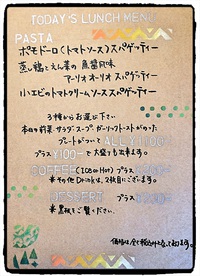 TODAY'S LUNCH MENU
PASTA
ポモドーロ(トマトソース)スパゲッティー
蒸し鶏と えん菜の 魚醤風味
アーリオオーリオ スパゲッティー
小エビのトマトクリームソーススパゲッティー
3種からお選び下さい
本日の前菜・サラダ・スープ・ガーリックトーストがのった
プレートがついて ALL
プラス ¥100- で大盛りも出来ます。
COFFEE (ICE or Hot) プラス
※その他Drinkは、2枚目にございます。
DESSERT プラス
※黒板をご覧ください。
価格は全て税込みとなっております。